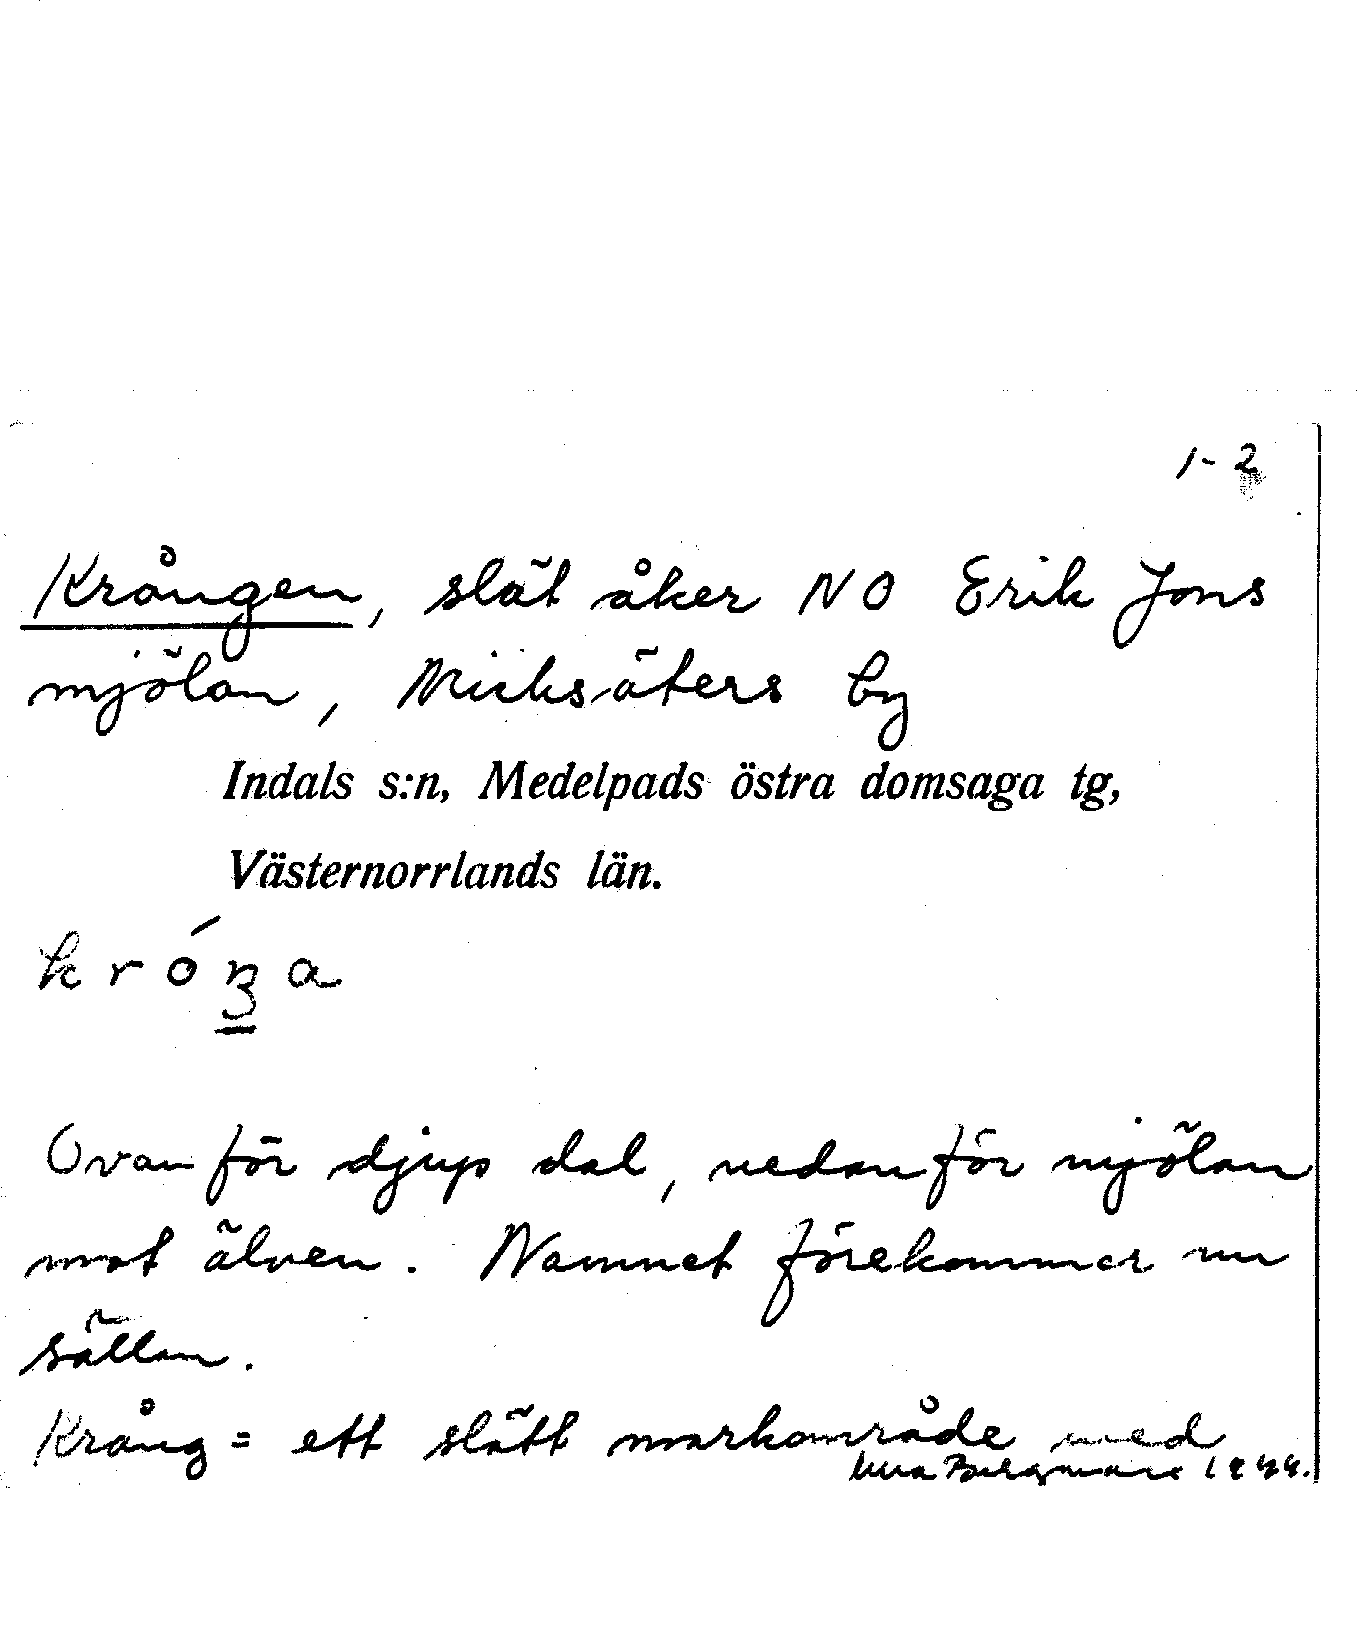 1-2
Krången, slät åker NO Erik Jons
mjölan, Micksäters by
Indals s:n, Medelpads östra domsaga tg,
Västernorrlands län.
króŋa
Ovanför djup dal, nedanför mjölan
mot älven. Namnet förekommer nu
sällan.
Krång = ett slätt markområde med
Bergmark 1944.